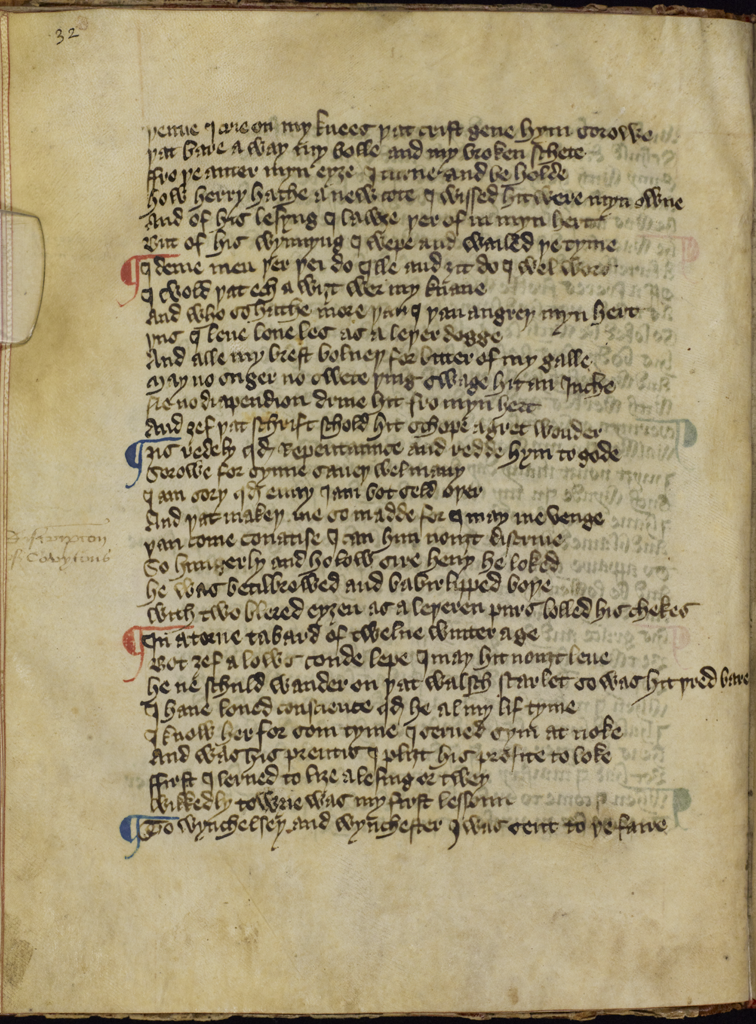 32
þenne I crie on my knees þat crist geue hym sorowe
þat bare a way my bolle and my broken schete
ffro þe auter myn eyȝe I turne and be holde
how herry hathe a new cote I wissed hit were myn owne
And of his lesyng I lawȝe þer of in myn hert
But of his wynnyng I wepe and wailed þe tyme
I deme men þer þei do ylle and ȝit do I wel wors
I wold þat ech a wiȝt wer my knaue
And who so hathe more þan I þan angreþ myn hert
þus I leue loueles as a leþer dogge
And alle my brest bolneþ for bitter of my galle
May no suger no swete þing swage hit an Inche
Ne no diapendion driue hit fro myn hert
And ȝef þat schrift schold hit schope a gret wonder
ȝus redely qd Repentaunce and redde hym to gode
Sorowe for synne saueþ wel many
I am sory qd enuy I am bot seld oþer
And þat makeþ me so madde for I may me venge
þan come couatise I can him nouȝt discriue
So hungerly and holow sire heruy he loked
he was betilbrowed and baburlipped boþe
With two blered eyȝen as a leþeren purs lolled his chekes
In a torne tabard of twelue winter age
Bot ȝef a lows coude lepe I may hit nouȝt leue
he ne schuld wander on þat walsch scarlet so was hit þred bare
I haue loued conscience qd he al my lif tyme
I know her for som tyme I serued sym at noke
And was his prentis I pliȝt his profite to loke
ffirst I lerned to liȝe a lesing or twey
Wikkedly to weie was my first lessoun
To wynchelsey and wynchester I was sent to þe faire